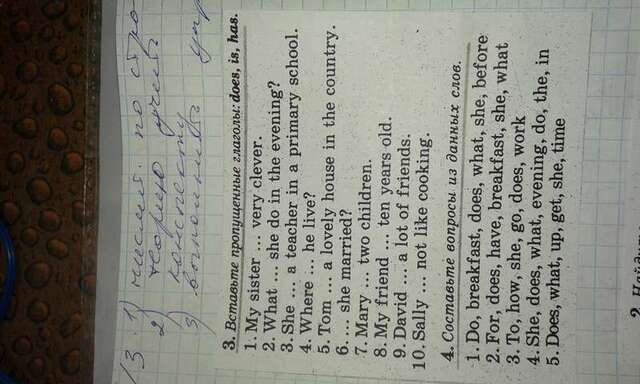 13 1) числит. по стро
2) теорию учить
конспекту
3) выполнить упр
3. Вставьте пропущенные глаголы: does, is, has.
1. My sister ... very clever.
2. What ... she do in the evening?
3. She ... a teacher in a primary school.
4. Where ... he live?
5. Tom ... a lovely house in the country.
6. ... she married?
7. Mary ... two children.
8. My friend ... ten years old.
9. David ... a lot of friends.
10. Sally ... not like cooking.
4. Составьте вопросы из данных слов.
1. Do, breakfast, does, what, she, before
2. For, does, have, breakfast, she, what
3. To, how, she, go, does, work
4. She, does, what, evening, do, the, in
5. Does, what, up, get, she, time